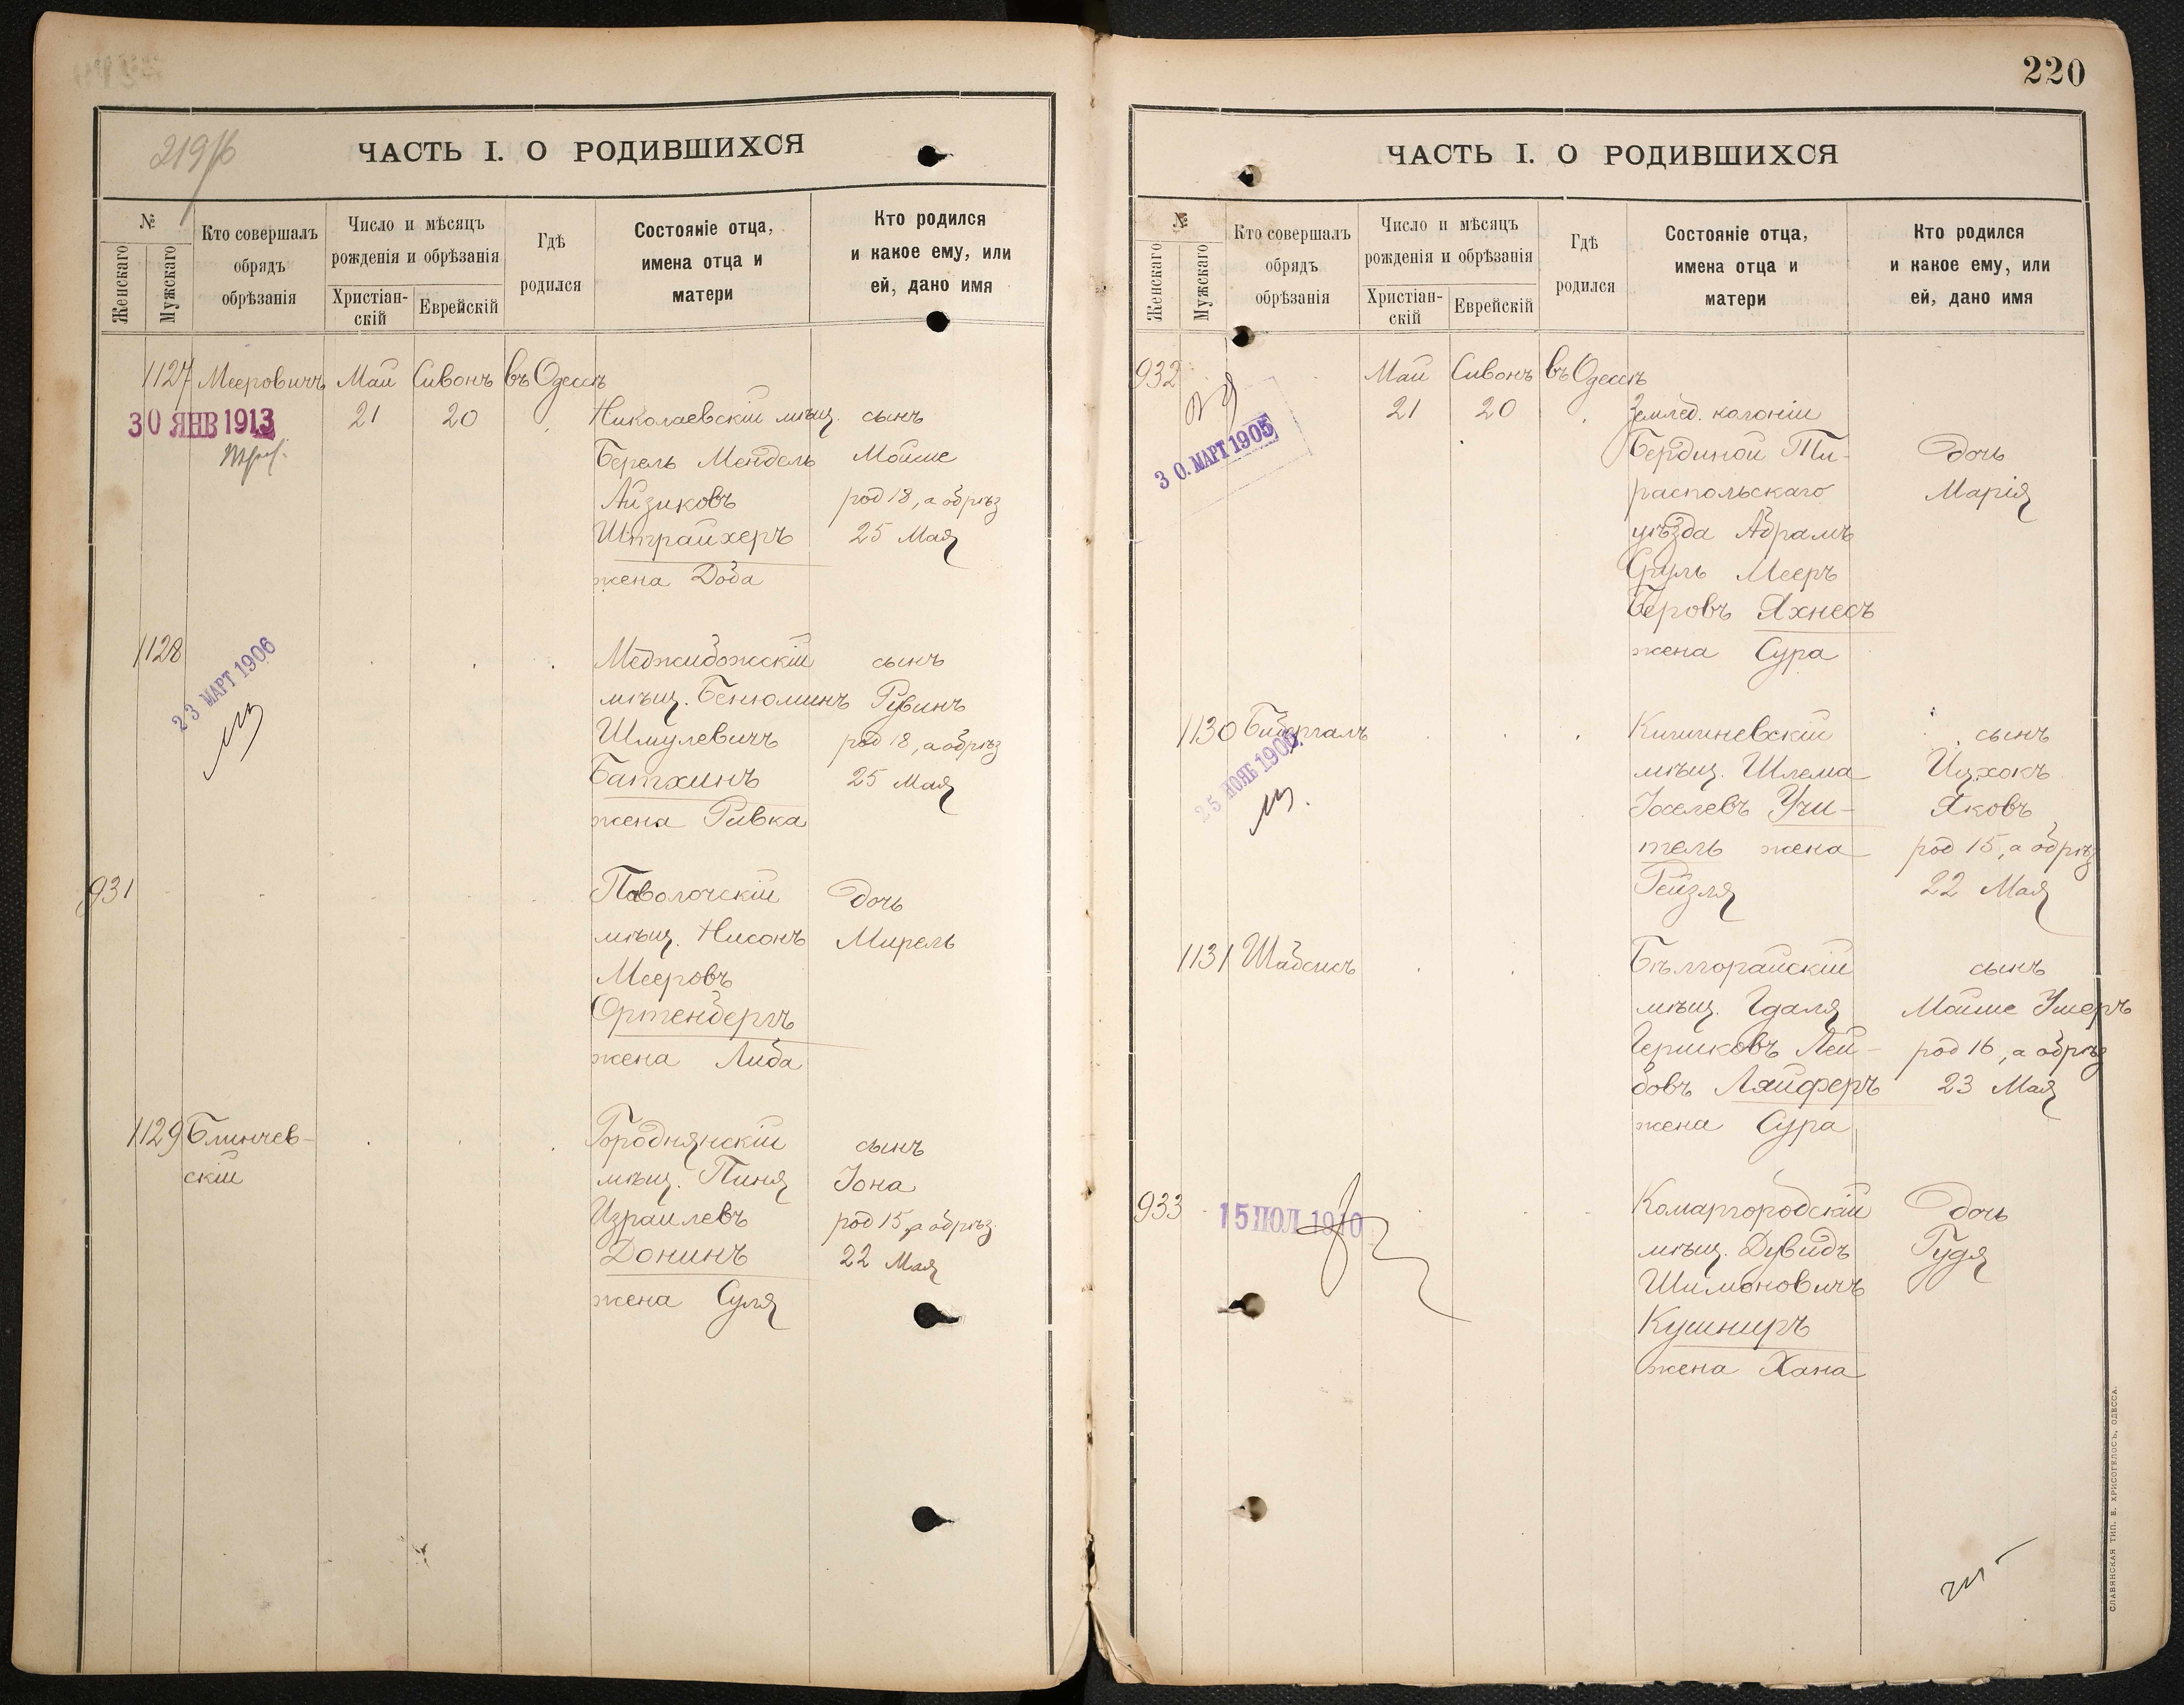 219/б
ЧАСТЬ I. О РОДИВШИХСЯ
№
Женскаго
Мужскаго
Кто совершалъ
обрядъ
обрѣзанія
Число и мѣсяцъ
рожденія и обрѣзанія
Христіан-
скій
Еврейскій
Гдѣ
родился
Состояніе отца,
имена отца и
матери
Кто родился
и какое ему, или
ей, дано имя
1127 Мееровичъ Май Сивонъ въ Одессѣ
30 ЯНВ 1913 21 20 Николаевскій мѣщ. сынъ
Берель Мендель Мойше
Айзиковъ род 18, а обрѣз
Штрайхеръ 25 Мая
жена Доба
1128 Меджибожскій сынъ
23 МАРТ 1906
мѣщ. Бенюминъ Рувинъ
Шмулевичъ род 18, а обрѣз
Батхинъ 25 Мая
жена Ривка
931 Паволочскій дочь
мѣщ. Нисонъ Мирель
Мееровъ
Ортенбергъ
жена Либа
1129 Блинчев- Городнянскій сынъ
скій мѣщ. Пиня Іона
Израилевъ род 15, а обрѣз.
Донинъ 22 Мая
жена Суля
220
ЧАСТЬ I. О РОДИВШИХСЯ
№
Женскаго
Мужскаго
Кто совершалъ
обрядъ
обрѣзанія
Число и мѣсяцъ
рожденія и обрѣзанія
Христіан-
скій
Еврейскій
Гдѣ
родился
Состояніе отца,
имена отца и
матери
Кто родился
и какое ему, или
ей, дано имя
932 Май Сивонъ въ Одессѣ
21 20 Землед. колоніи
30. МАРТ 1905
Бердиной Ти- дочь
распольскаго Марія
уѣзда Абрамъ
Сруль Мееръ
Беровъ Яхнесъ
жена Сура
1130 Кишиневскій сынъ
25 НОЯБ 1906
мѣщ. Шлема Ицхокъ
Іоселевъ Учи- Яковъ
тель жена род 15, а обрѣз
Рейзля 22 Мая
1131 Шабсисъ Бѣлгорайскій сынъ
мѣщ. Гдаля Мойше Ушеръ
Гершковъ Лей- род 16, а обрѣз
бовъ Ляйферъ 23 Мая
жена Сура
933 15 ІЮЛ 1910 Комаргородскій дочь
мѣщ. Дувидъ Гудя
Шимоновичъ
Кушниръ
жена Хана
СЛАВЯНСКАЯ ТИП. Е. ХРИСОГЕЛОСЪ, ОДЕССА.